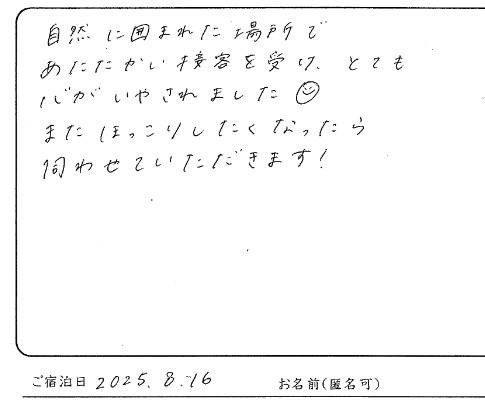 自然に囲まれた場所で
あたたかい接客を受け、とても
心がいやされました☺
またほっこりしたくなったら
伺わせていただきます!
ご宿泊日 2025. 8. 16 お名前(匿名可)